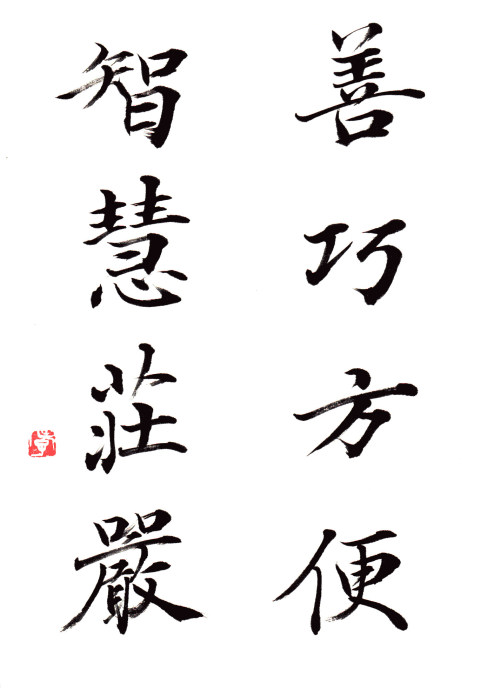 善巧方便
智慧莊嚴